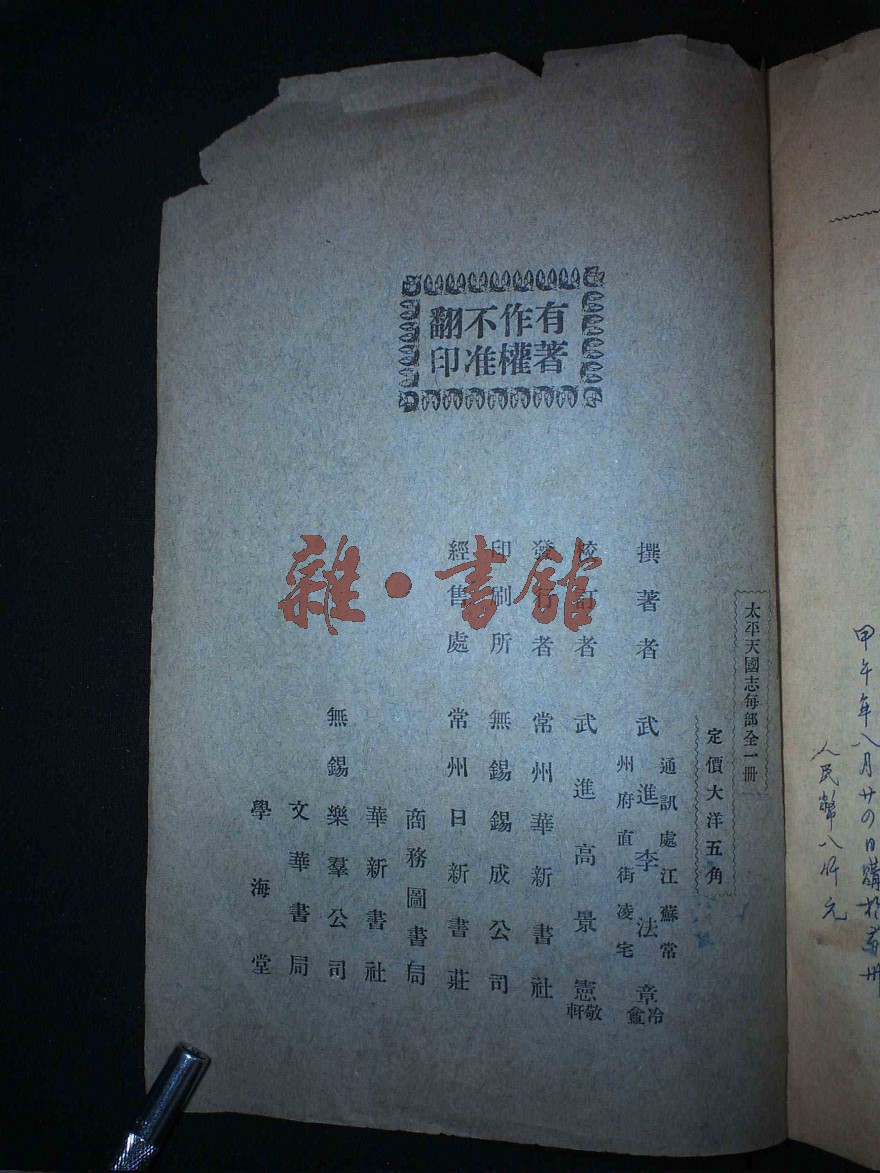 甲午年八月廿四日購於蘇州
人民幣八仟元
太平天國志每部全一冊
定價大洋五角
有著作權不准翻印
撰著者 武進李法章 冷龕
通訊處江蘇常州府直街凌宅
校訂者 武進高景憲 敬軒
發行者 常州華新書社
印刷所 無錫錫成公司
經售處 常州日新書莊
商務圖書局
華新書社
無錫樂羣公司
文華書局
學海堂
雜·書館